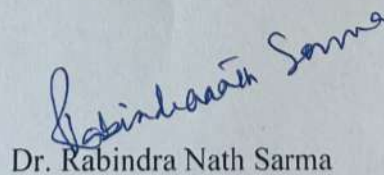 Rabindranath Sarma
Dr. Rabindra Nath Sarma